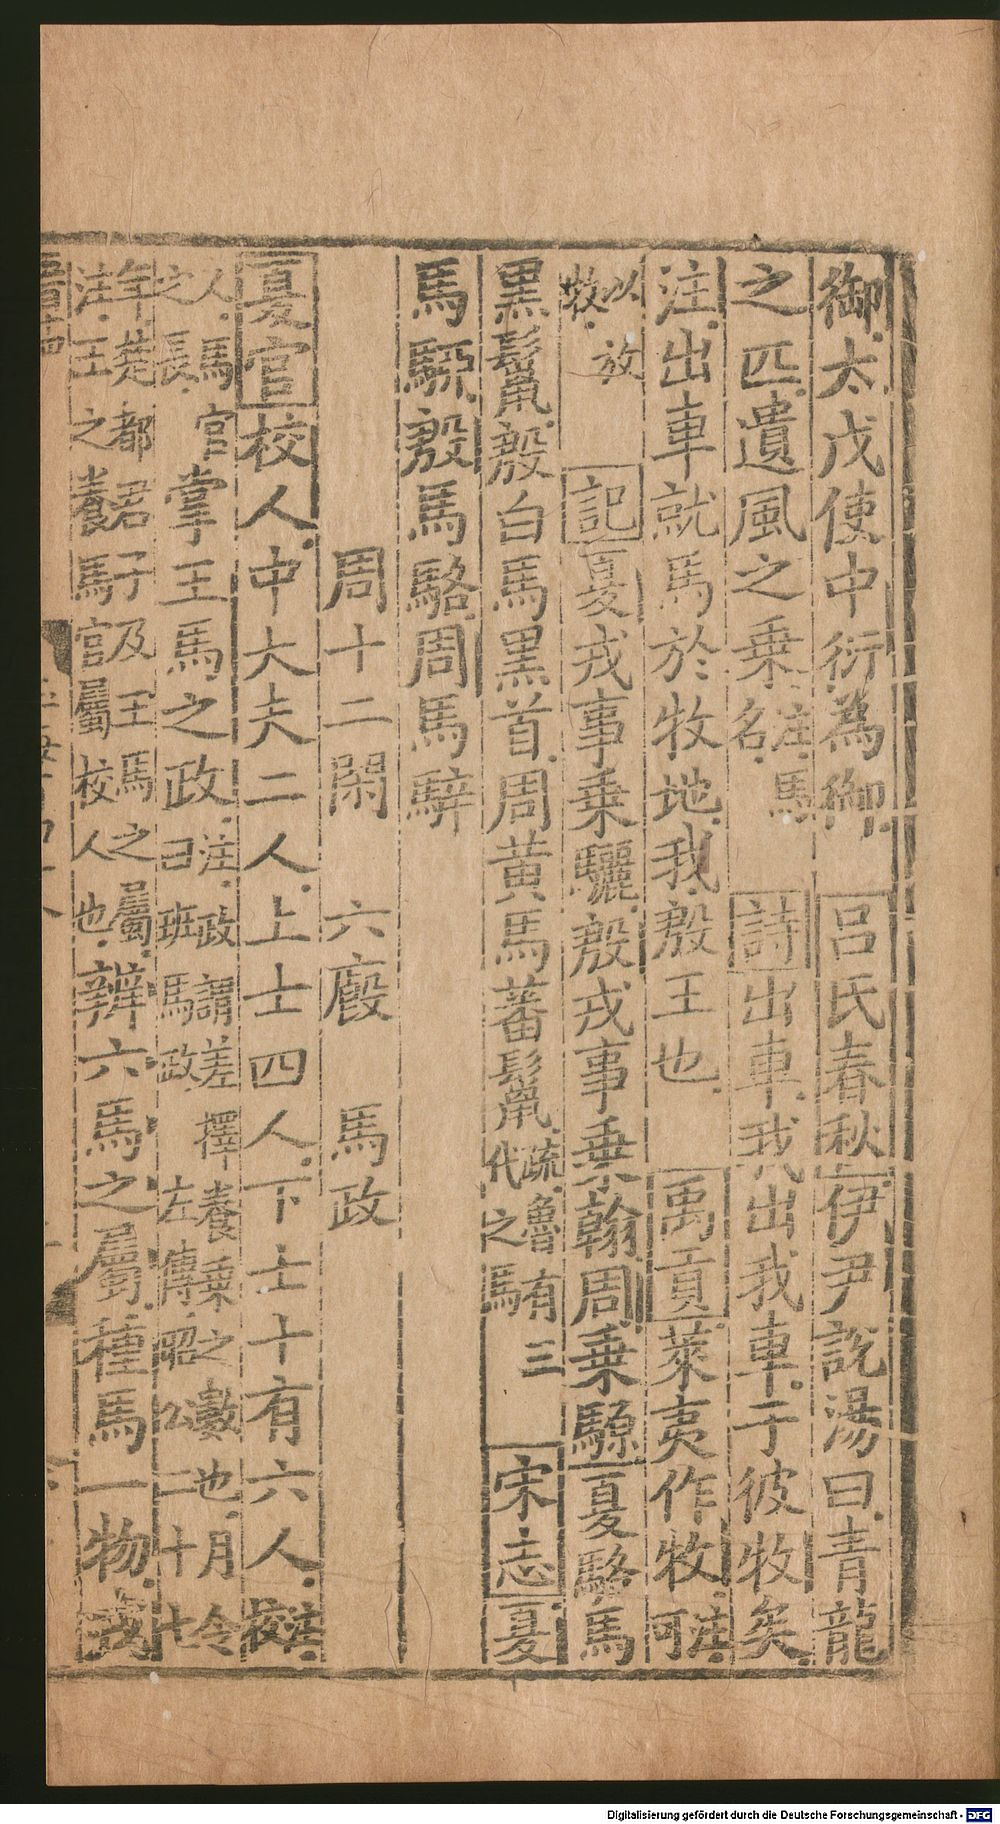 御太戊使中衍為御吕氏春秋伊尹說湯曰青龍
之匹遺風之乗注馬名詩出車我出我車于彼牧矣
注出車就馬於牧地我殷王也禹貢萊夷作牧注可
以放牧記夏戎事乗驪殷戎事乗翰周乗騵夏駱馬
黒鬛殷白馬黒首周黃馬蕃鬛疏魯有三代之馬宋志夏
馬騵殷馬駱周馬騂
周十二閑六廄馬政
夏官校人中大夫二人上士四人下士十有六人注校
人馬官之長掌王馬之政注政謂差擇養乗之數也月令曰班馬政左傳昭公二十七
年楚都君子及王馬之屬注王之養馬官屬校人也辨六馬之屬種馬一物戎
Digitalisierung gefördert durch die Deutsche Forschungsgemeinschaft - DFG